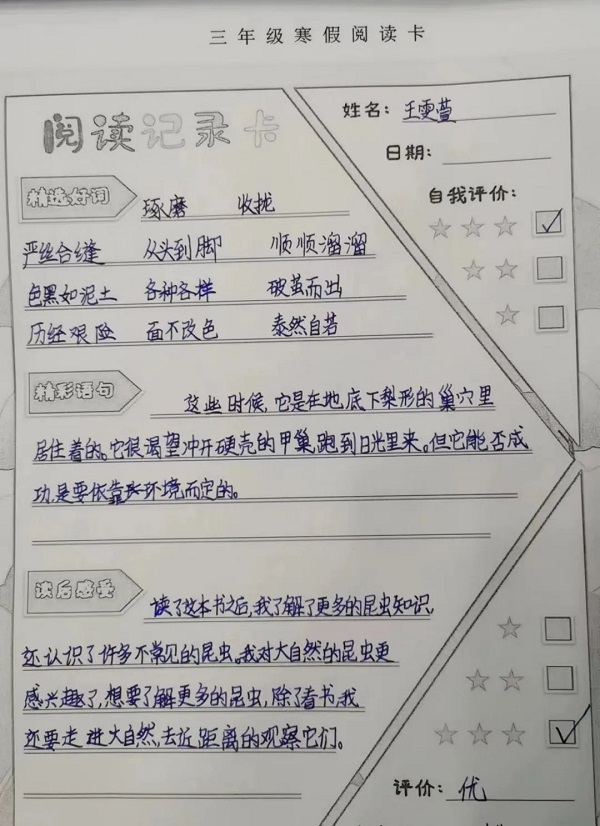 三年级寒假阅读卡
阅读记录卡
姓名：王雯萱
日期：
自我评价：
精选好词
琢磨 收拢
严丝合缝 从头到脚 顺顺溜溜
色黑如泥土 各种各样 破茧而出
历经艰险 面不改色 泰然自若
精彩语句
这些时候，它是在地底下梨形的巢穴里
居住着的。它很渴望冲开硬壳的甲巢，跑到日光里来。但它能否成
功，是要依靠环境而定的。
读后感受
读了这本书之后，我了解了更多的昆虫知识，
还认识了许多不常见的昆虫。我对大自然的昆虫更
感兴趣了，想要了解更多的昆虫，除了看书，我
还要走进大自然，去近距离的观察它们。
评价：优